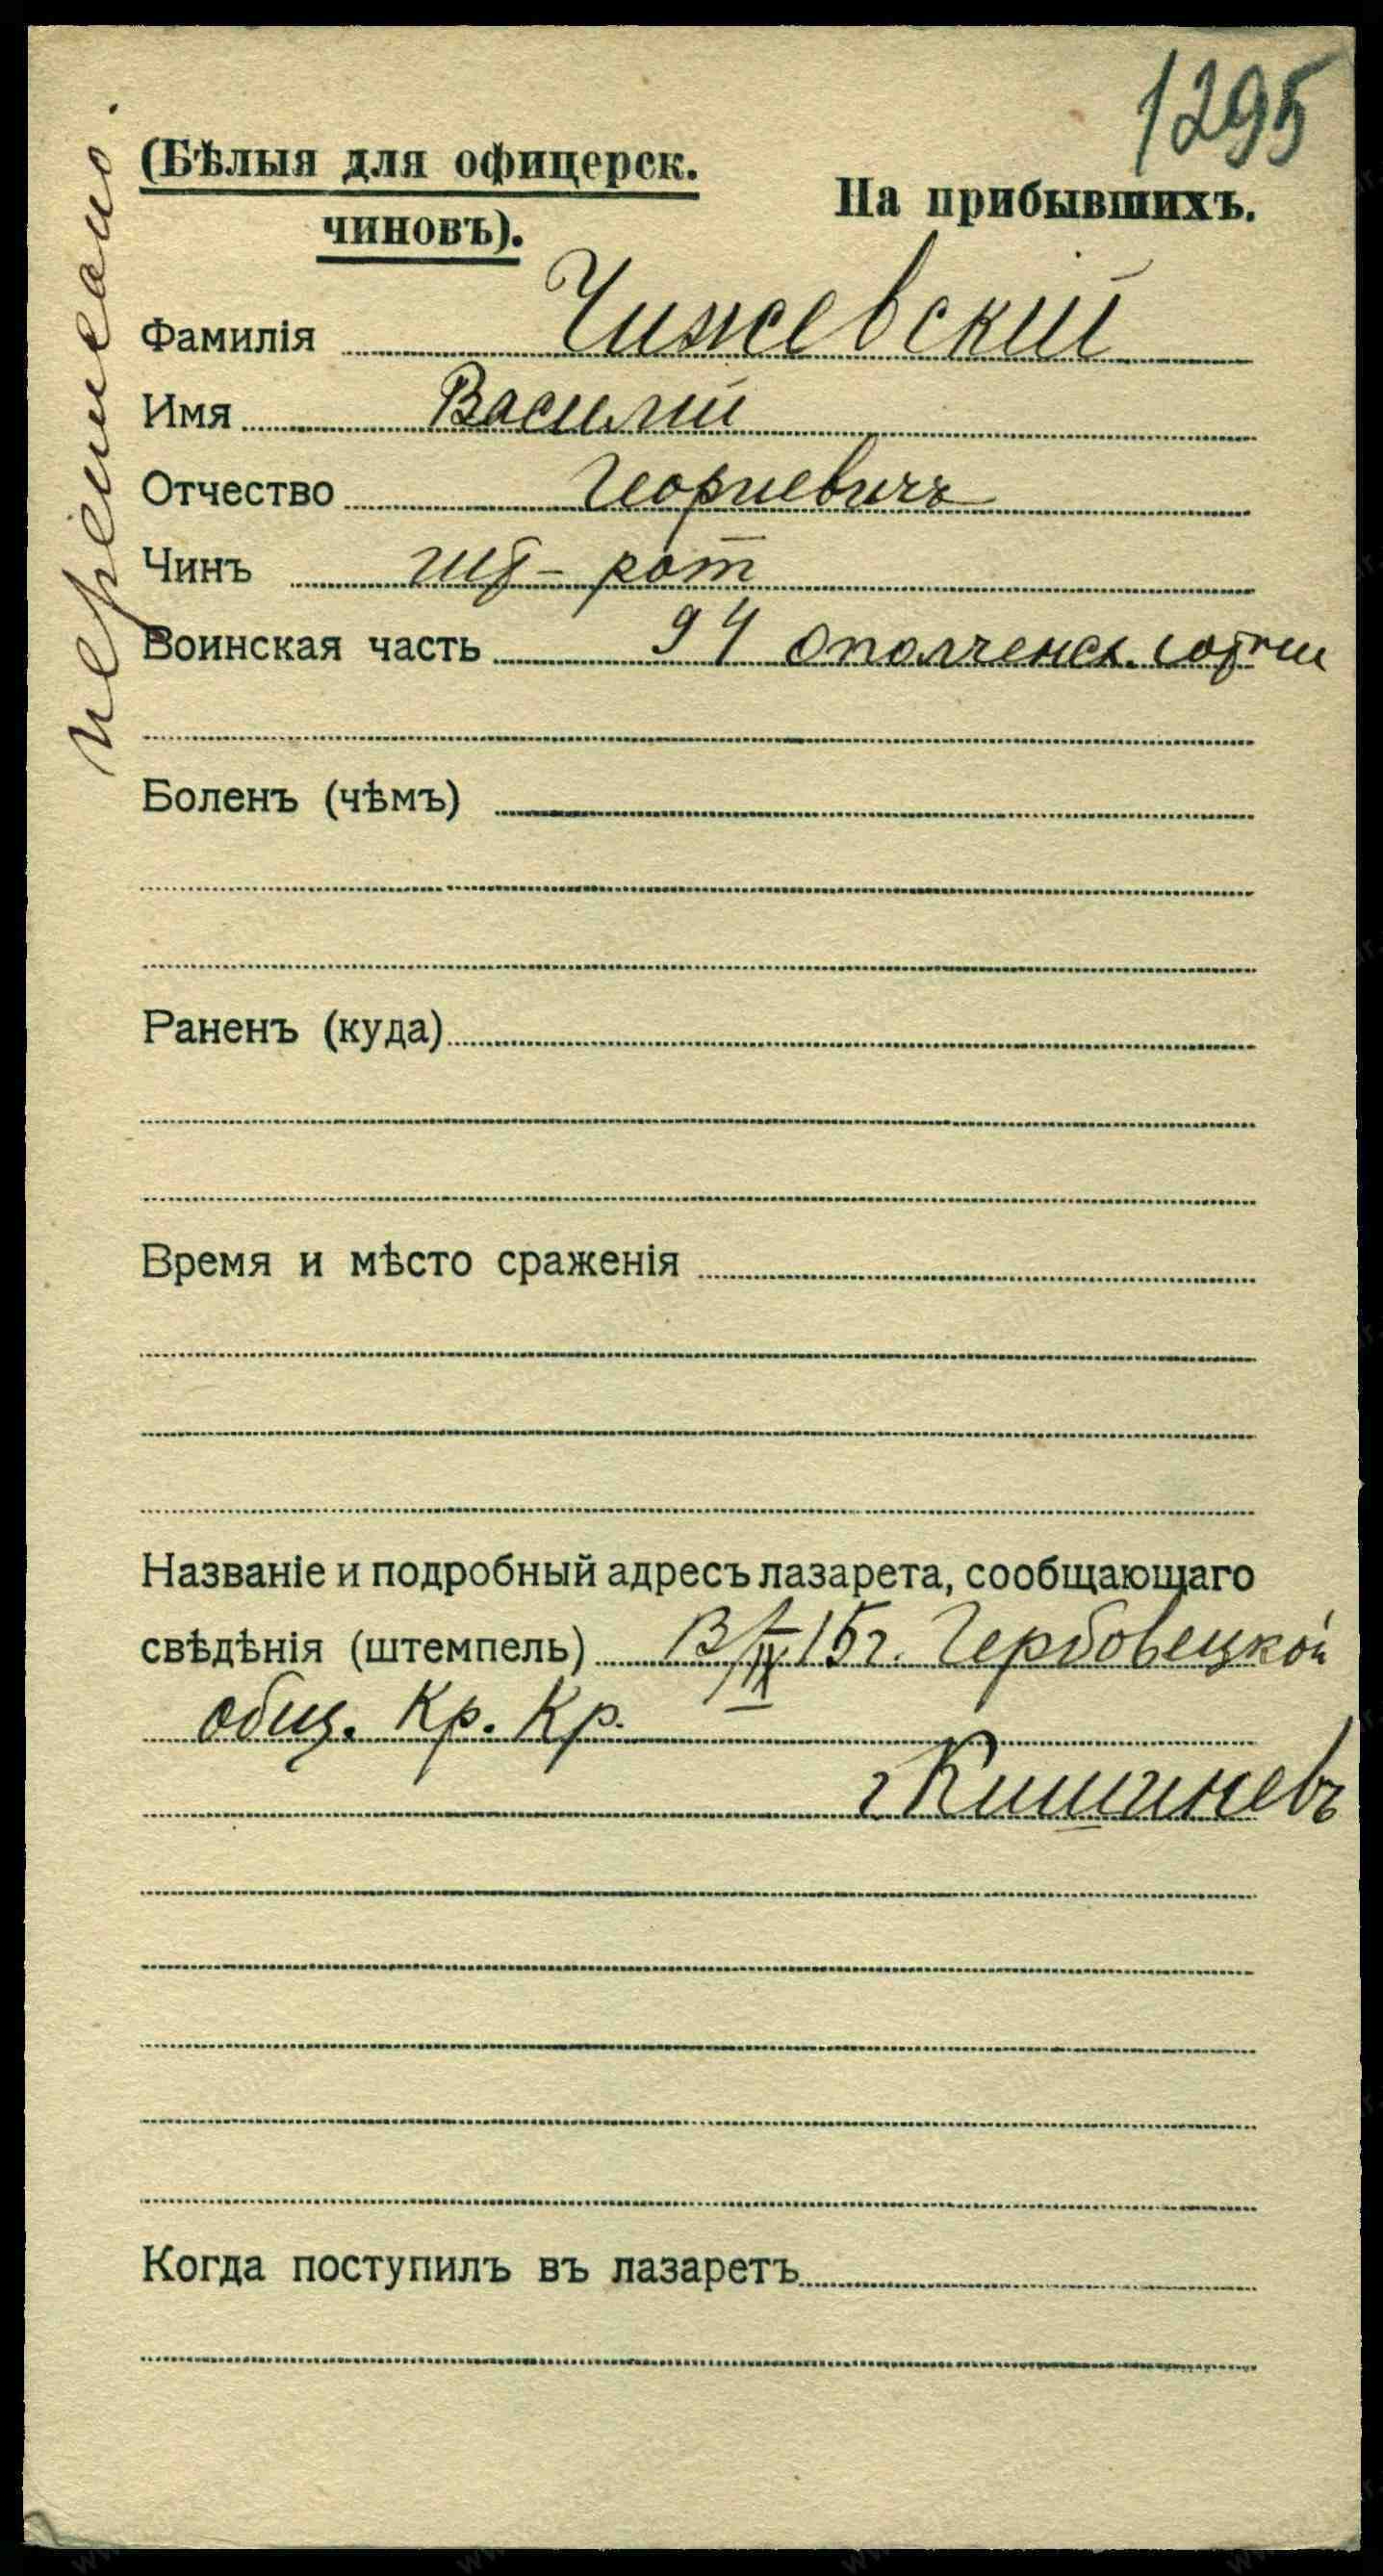 1295
(Бѣлыя для офицерск.
чиновъ).
На прибывшихъ.
переписано.
Фамилія Чижевскій
Имя Василий
Отчество Георгиевичъ
Чинъ шт-рот
Воинская часть 94 ополченск. сотни
Боленъ (чѣмъ)
Раненъ (куда)
Время и мѣсто сраженія
Названіе и подробный адресъ лазарета, сообщающаго
свѣдѣнія (штемпель) 13/IX 15г. Гербовецкой
общ. Кр. Кр.
г Кишиневъ
Когда поступилъ въ лазаретъ